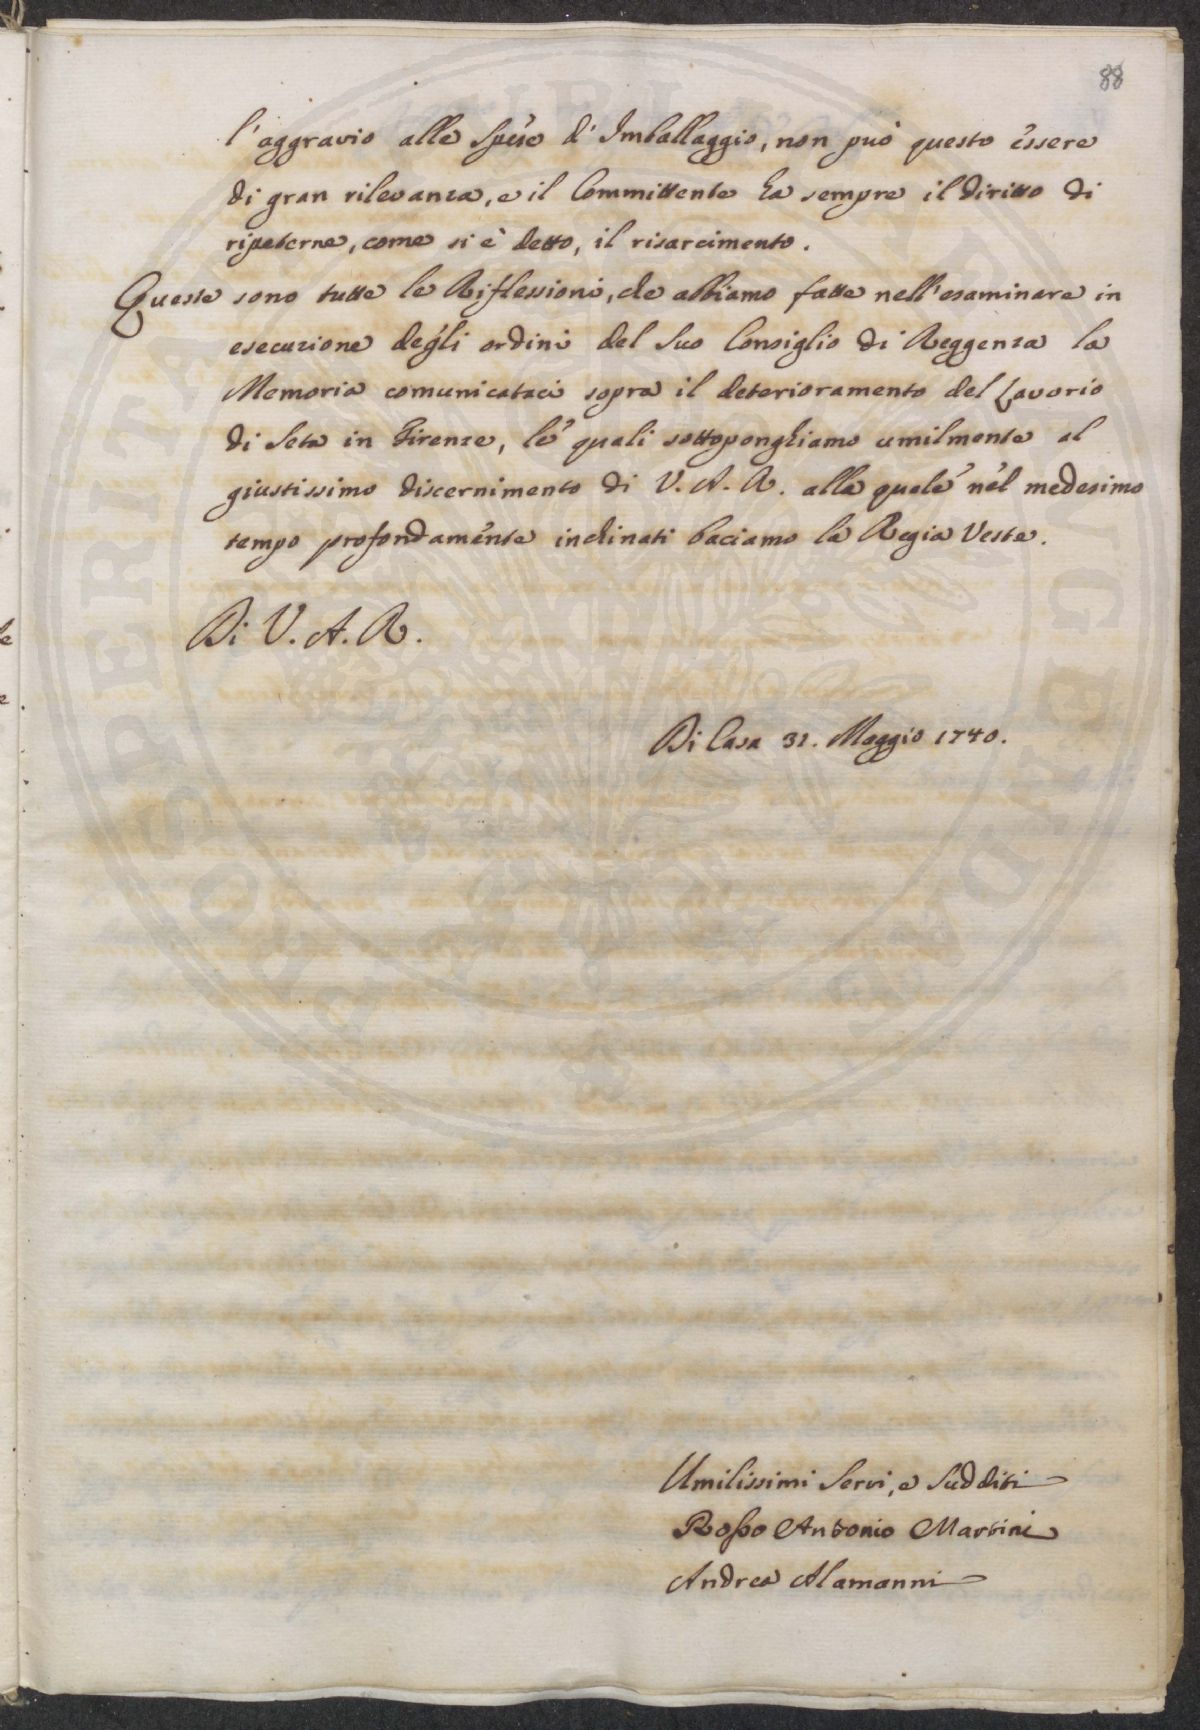 88
l'aggravio alle Spese d'Imballaggio, non può questo essere
di gran rilevanza, e il Committente ha sempre il diritto di
ripeterne, come si è detto, il risarcimento.
Queste sono tutte le Riflessioni, che abbiamo fatte nell'esaminare in
esecuzione degli ordini del Suo Consiglio di Reggenza la
Memoria comunicataci sopra il deterioramento del Lavorio
di Seta in Firenze, le quali sottoponghiamo umilmente al
giustissimo discernimento di V. A. R. alla quale nel medesimo
tempo profondamente inclinati baciamo la Regia Veste.
Di V. A. R.
Di Casa 31. Maggio 1740.
Umilissimi Servi, e Sudditi
Rosso Antonio Martini
Andrea Alamanni